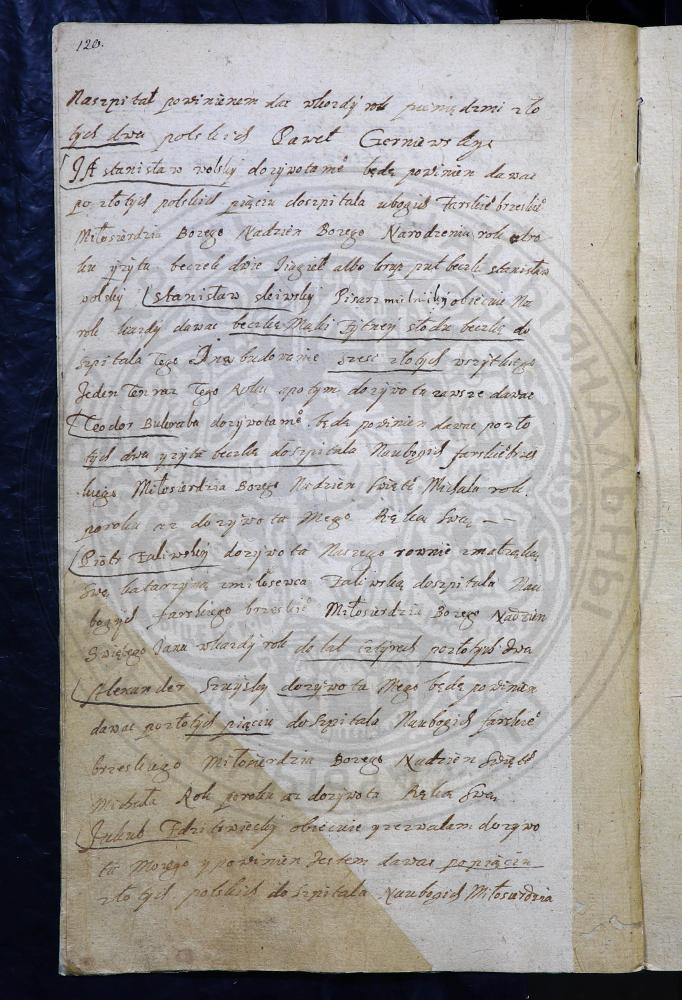 120.
Naszpital powinienem dac wkozdÿ rok pieniędzmi zło
tych dwa polskich Paweł
JA stanisław wolskÿ dozÿwotame͠ będę powinien dawac
po złotÿch polskich pięciu doszpitala ubogich farskie͠ brzeskie͠
Miłosierdzia Bozego Nadzien Bozego Narodzenia rok
ku ÿzÿta beczek dwie albo krup puł beczki stanisław
wolskÿ stanisław Pisarz obiecuie Na
rok kazdÿ dawac beczkę Mąki słodu beczkę do
szpitala Tego Ana budowanie szesc złotÿch wszÿtkiego
Jeden Tenraz Tego Roku apotÿm dozÿwota zawsze dawac
Teodor Bulwaba dozÿwotame͠ będę powinien dawac pozło
tÿch dwa ÿzÿta beczkę doszpitala Naubogich farskie͠ brzes
kiego Miłosierdzia Bozego Nadzien Swięte͠ Michala rok
poroku az dozÿwota Mego Ręką Swą —
Piotr Faliwskÿ dozÿwota Naszego rownie zmałząką
Swą katarzÿną Faliwską doszpitala Nau
bogich farskiego brzeskie͠ Miłosierdzia Bozego Nadzien
Swiętego Jana wkazdÿ rok do lat cztÿrech pozłotÿch dwa
Alexander Szuÿskÿ dozÿwota Mego będę powinien
dawac pozłotÿch pięciu doszpitala Naubogich farskie͠
brzeskiego Miłosierdzia Bozego Nadzien Swięte͠
Michała Rok poroku az dozÿwota Ręką Swą
Jakub obiecuie ÿzezwalam dozÿwo
ta Moiego ÿ powinien Jestem dawac popięciu
złotÿch polskich doszpitala Naubogich Miłosierdzia